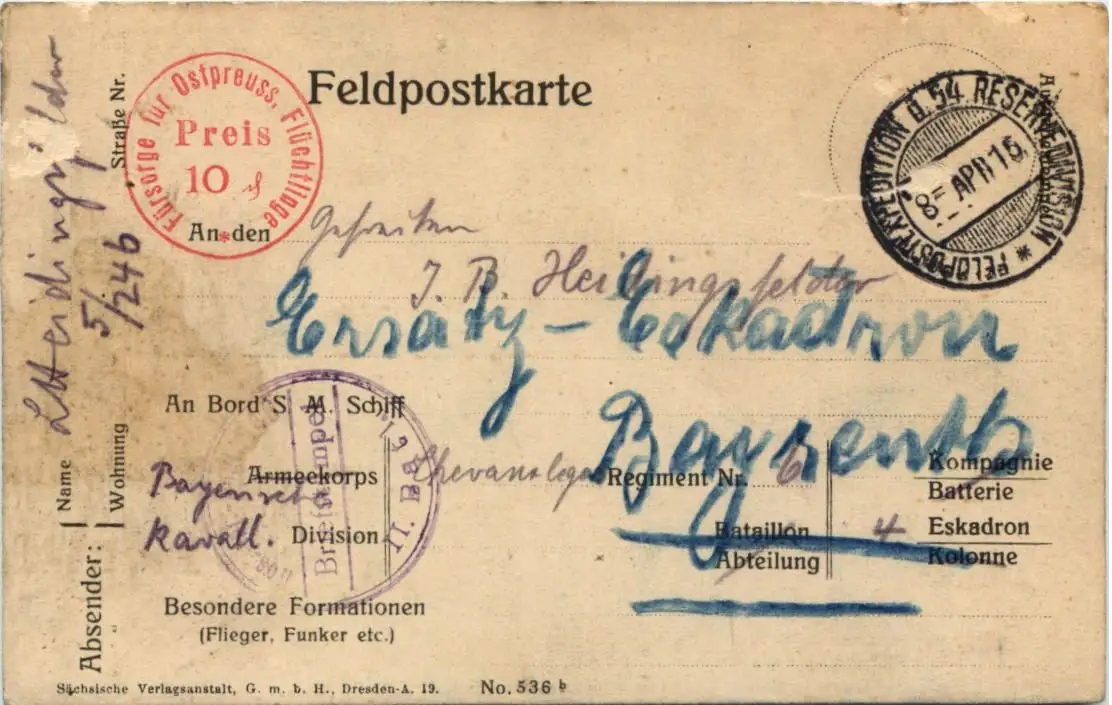 Feldpostkarte
Fürsorge für Ostpreuss. Flüchtlinge
Preis
10
FELDPOSTEXPEDITION D. 54. RESERVEDIVISION *
8 APR 16
An den Gefreiten
J. B. Heidingsfelder
Ersatz-Eskadron
Bayreuth
An Bord S. M. Schiff
Armeekorps Chevauleger Regiment Nr. 6 Kompagnie
Batterie
Bayerische
Kavall. Division
Bataillon 4 Eskadron
Abteilung Kolonne
Briefstempel
II. Batl.
Besondere Formationen
(Flieger, Funker etc.)
Absender:
Name
Wohnung
Straße Nr.
Lt Heidingsfelder
5/246
Sächsische Verlagsanstalt, G. m. b. H., Dresden-A. 19. No. 536 b